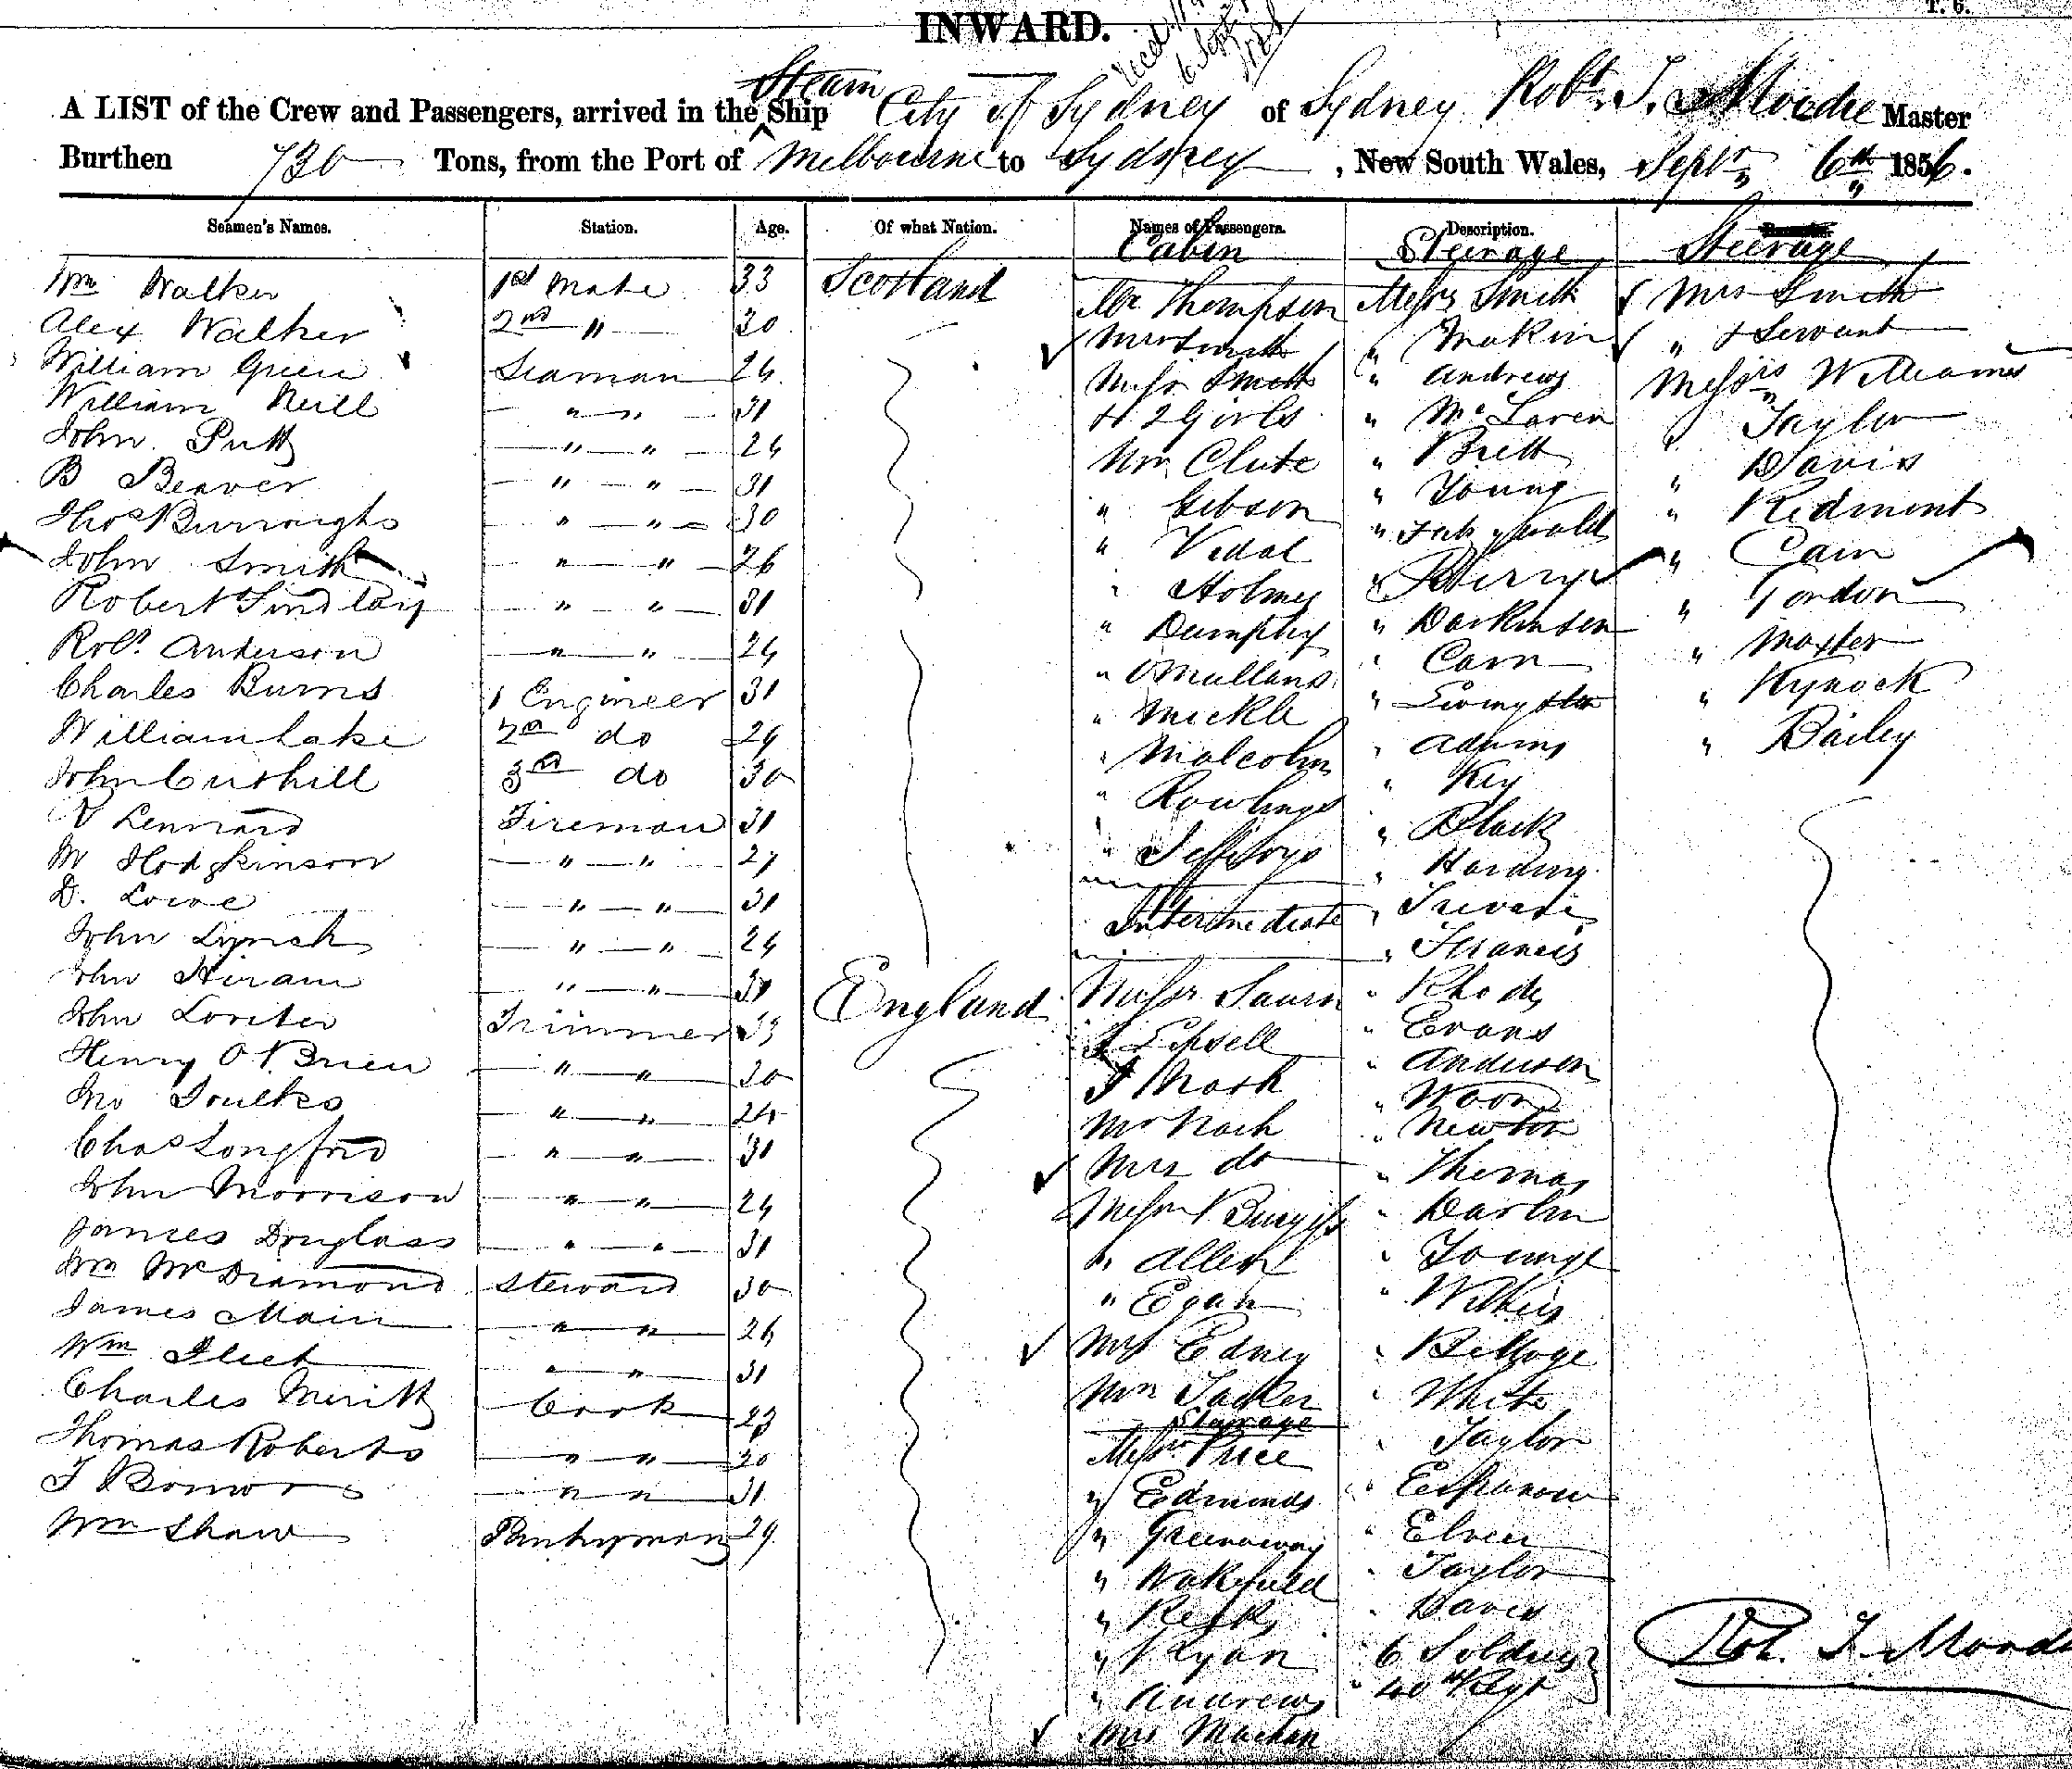 T. 6.
INWARD.
6 Sept
A LIST of the Crew and Passengers, arrived in the Steam Ship City of Sydney of Sydney Robt. T. Moodie Master
Burthen 730 Tons, from the Port of Melbourne to Sydney, New South Wales, Septr 6th 1856.
Seamen's Names. Station. Age. Of what Nation. Names of Passengers. Description.
Cabin Steerage Steerage
Wm Walker 1st Mate 33 Scotland Mr Thompson Messrs Smith Mrs Smith
Alex Walker 2nd " 30 Mrs Smith " Makin " & Servant
William Green Seaman 24 Messrs Smith " Andrews Messrs Williams
William Neill " " 31 & 2 Girls " McLaren Taylor
John Putt " " 24 Mr Clute " Brett " Davis
B Beaver " " 31 " Gibson " Young " Redmont
Thos Burroughs " " 30 " Vidal " " Cain
John Smith " " 26 " Holmes " Berry " Gordon
Robert Findlay " " 31 " Dumphy " Darkinson " Maxter
Robt. Anderson " " 24 " Mullans " Carn " Kynock
Charles Burns 1 Engineer 31 " Mickle " Livingston " Bailey
William Lake 2nd do 29 " Malcolm " Adams
John Cuthill 3rd do 30 " Rowlings " Key
Lennard Fireman 31 " Jeffreys " Black
M Hodgkinson " " 27 " Harding
D. Lowe " " 31 Intermediate "
John Lynch " " 24 " Francis
John Hiram " " 31 England Messrs " Rhodes
John Trimmer 33 " Evans
Henry O'Brien " " 30 " Anderson
Jno Foulkes " " 24 Mr Nash " Woon
Chas Longford " " 31 Mrs do " Newton
John Morrison " " 24 Messrs Burgess " Thomas
James Douglass " " 31 " Allen " Darlin
Wm McDiamond Steward 30 " Egan " Young
James Main " " 26 Mrs Edney " Wilkins
Wm Fleet " " 31 Mr Tacker "
Charles Meritt Cook 23 Steerage " White
Thomas Roberts " " 30 Messrs Price " Taylor
" " 31 " Edmonds "
Wm Shaw Pantryman 29 " Greenaway "
" Wakefield " Taylor
" " Davis
" Ryan 6 Soldiers
" Andrews " 40th Regt
Mrs
Rob. T. Moodie